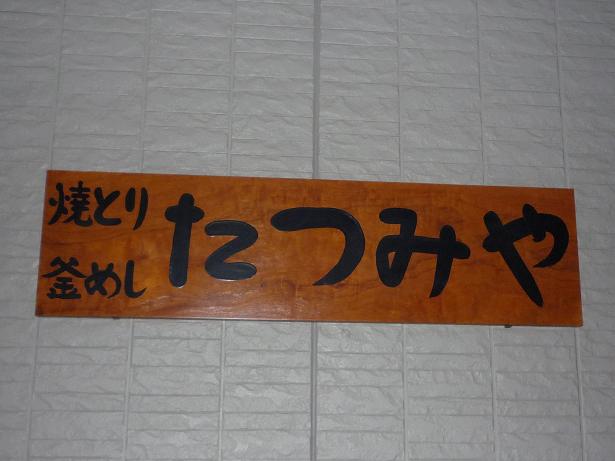 焼とり
釜めし
たつみや